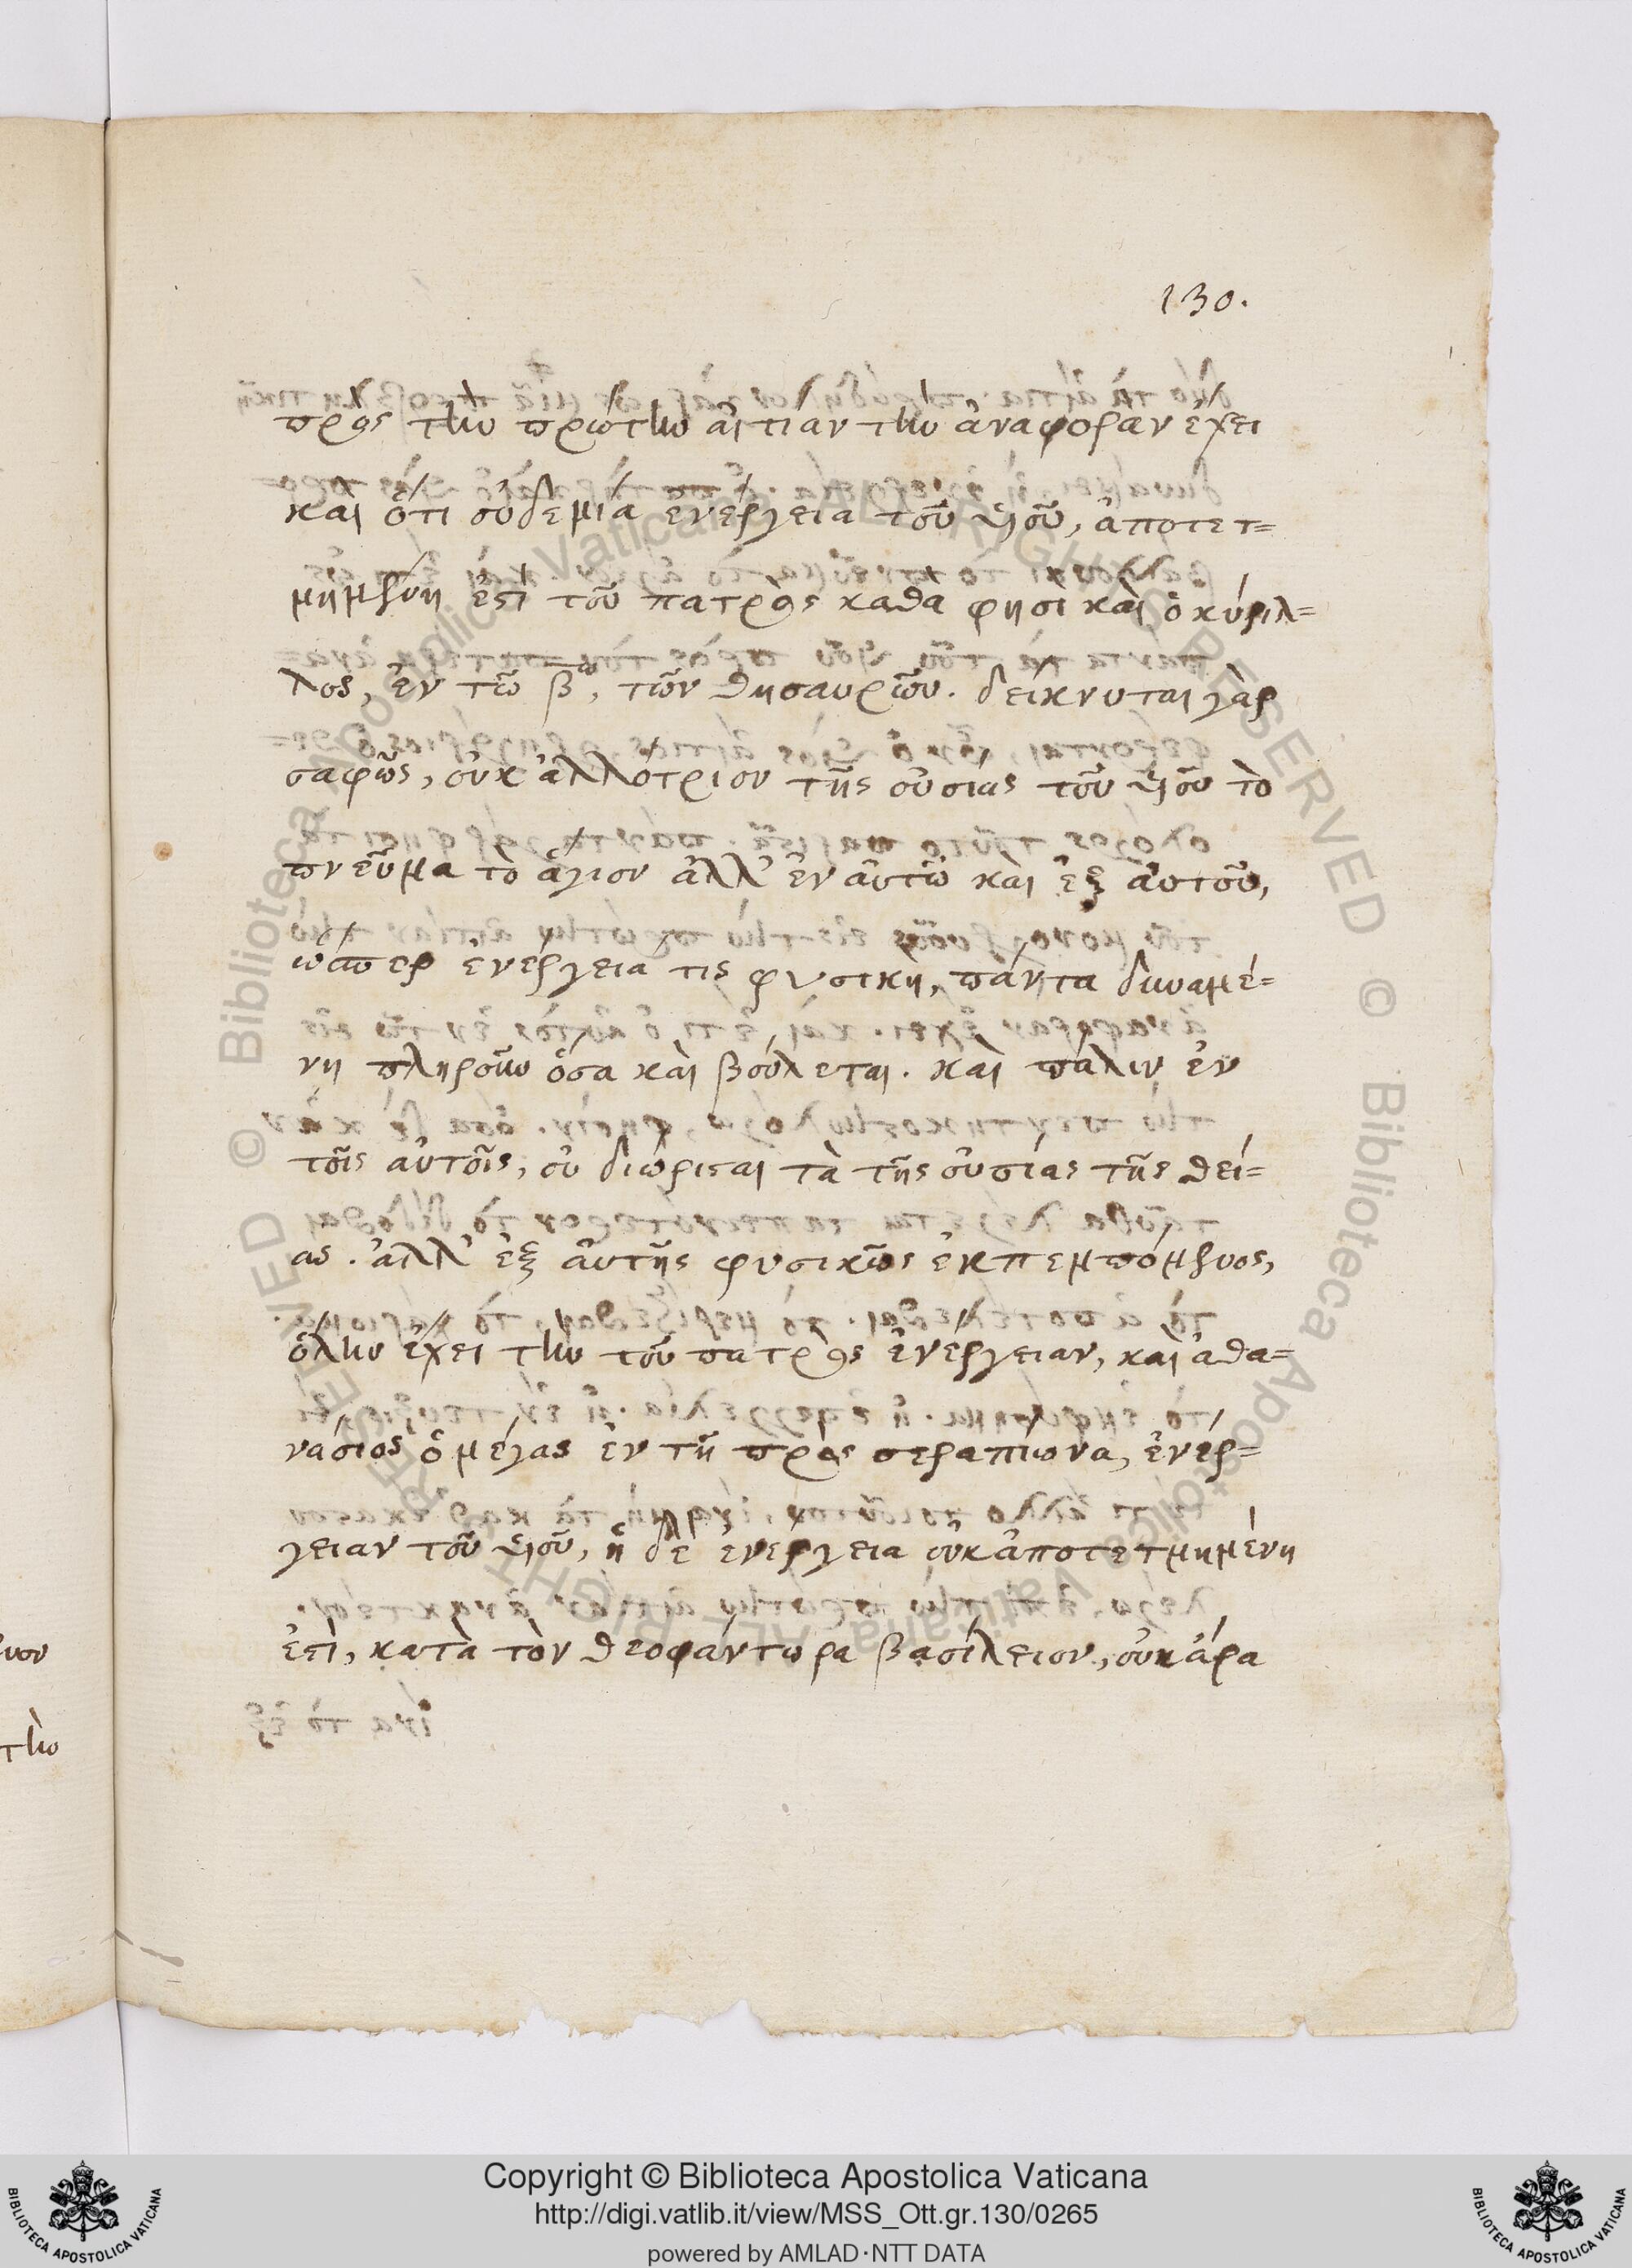 130.
πρὸς τὴν πρώτην αἰτίαν τὴν ἀναφορὰν ἔχει
καὶ ὅτι οὐδεμία ἐνέργεια τοῦ υἱοῦ, ἀποτετ=
μημένη ἐστὶ τοῦ πατρὸς καθά φησι καὶ ὁ κύριλ=
λος, ἐν τῶ β^ω, τῶν θησαυρῶν. δείκνυται γὰρ
σαφῶς, οὐκ ἀλλότριον τῆς οὐσίας τοῦ υἱοῦ τὸ
πνεῦμα τὸ ἅγιον ἀλλ' ἐν αὐτῶ καὶ ἐξ αὐτοῦ,
ὥσπερ ἐνέργεια τις φυσικὴ, πάντα δυναμέ=
νη πληροῦν ὅσα καὶ βούλεται. καὶ πάλιν ἐν
τοῖς αὐτοῖς, οὐ διώρισται τὰ τῆς οὐσίας τῆς θεί=
ας. ἀλλ' ἐξ αὐτῆς φυσικῶς ἐκπεμπόμενος,
ὅλην ἔχει τὴν τοῦ πατρὸς ἐνέργειαν, καὶ ἀθα=
νάσιος ὁ μέγας ἐν τῆ πρὸς σεραπίωνα, ἐνέρ=
γειαν τοῦ υἱοῦ, ἡ δὲ ἐνέργεια οὐκ ἀποτετμημένη
ἐστὶ, κατὰ τὸν θεοφάντορα βασίλειον, οὐκ ἄρα
Copyright © Biblioteca Apostolica Vaticana
http://digi.vatlib.it/view/MSS_Ott.gr.130/0265
powered by AMLAD·NTT DATA
BIBLIOTECA APOSTOLICA VATICANA
BIBLIOTECA APOSTOLICA VATICANA